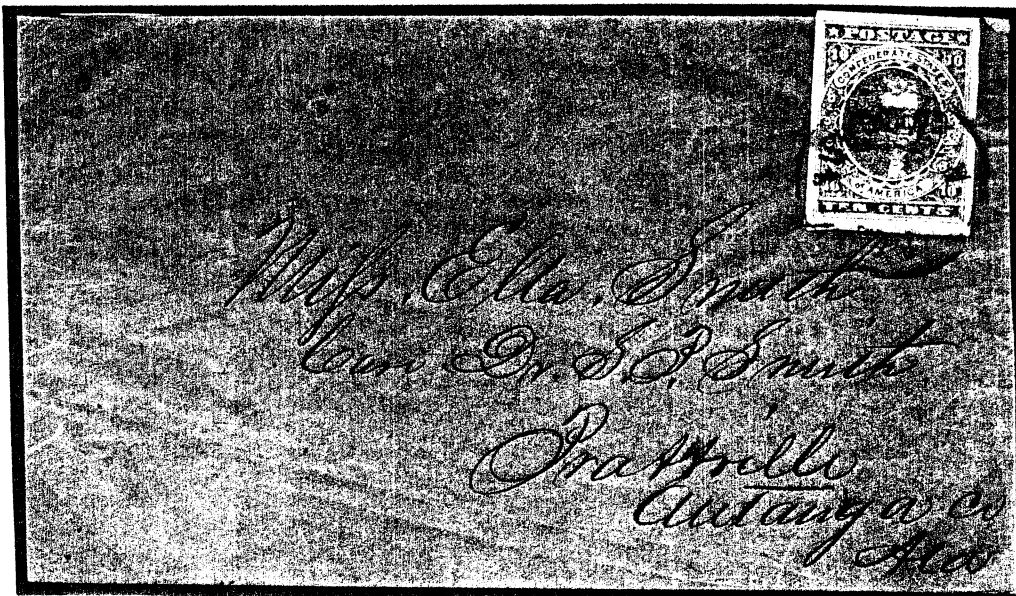 POSTAGE
10 10
CONFEDERATE STATES
OF AMERICA
10 10
TEN CENTS
Miss. Ella. Smith
Care Dr. S. P. Smith
Prattville
Autauga Co
Ala